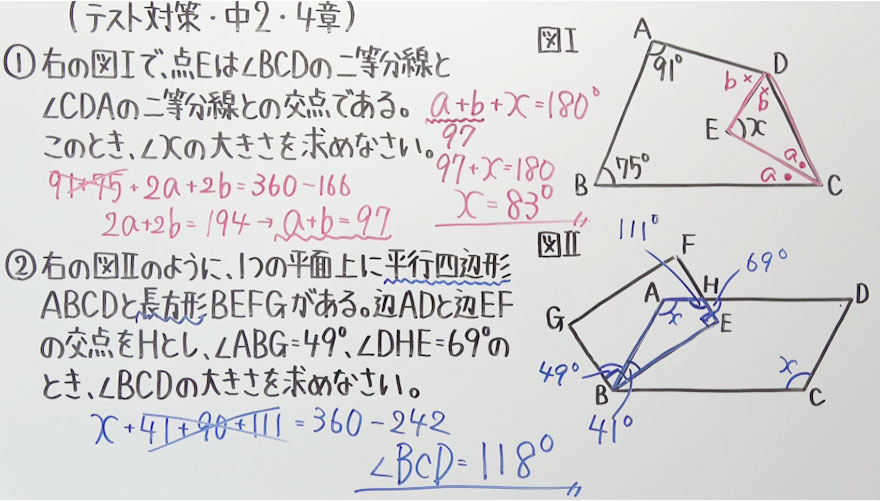 (テスト対策・中2・4章)
①右の図Iで、点Eは∠BCDの二等分線と
∠CDAの二等分線との交点である。
このとき、∠xの大きさを求めなさい。
91+75+2a+2b=360-166
2a+2b=194→a+b=97
a+b+x=180°
97
97+x=180
x=83°
図I
A
91°
D
b
b
E
x
a
a
75°
B
C
②右の図IIのように、1つの平面上に平行四辺形
ABCDと長方形BEFGがある。辺ADと辺EF
の交点をHとし、∠ABG=49°、∠DHE=69°の
とき、∠BCDの大きさを求めなさい。
x+41+90+111=360-242
∠BCD=118°
図II
111°
F
69°
A
H
D
G
x
E
49°
x
B
C
41°